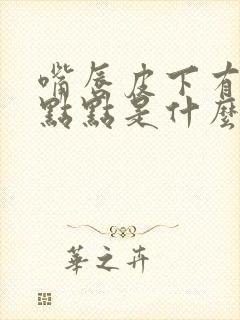 嘴唇皮下有
點點是什麼
華之卉